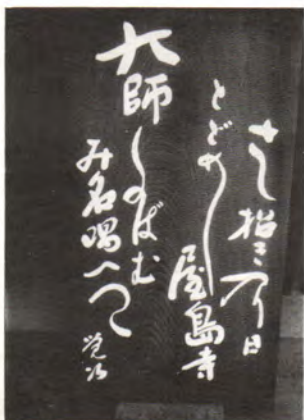 さし招き入日
とどめし
屋島寺
大師しのばむ
み名唱へつつ